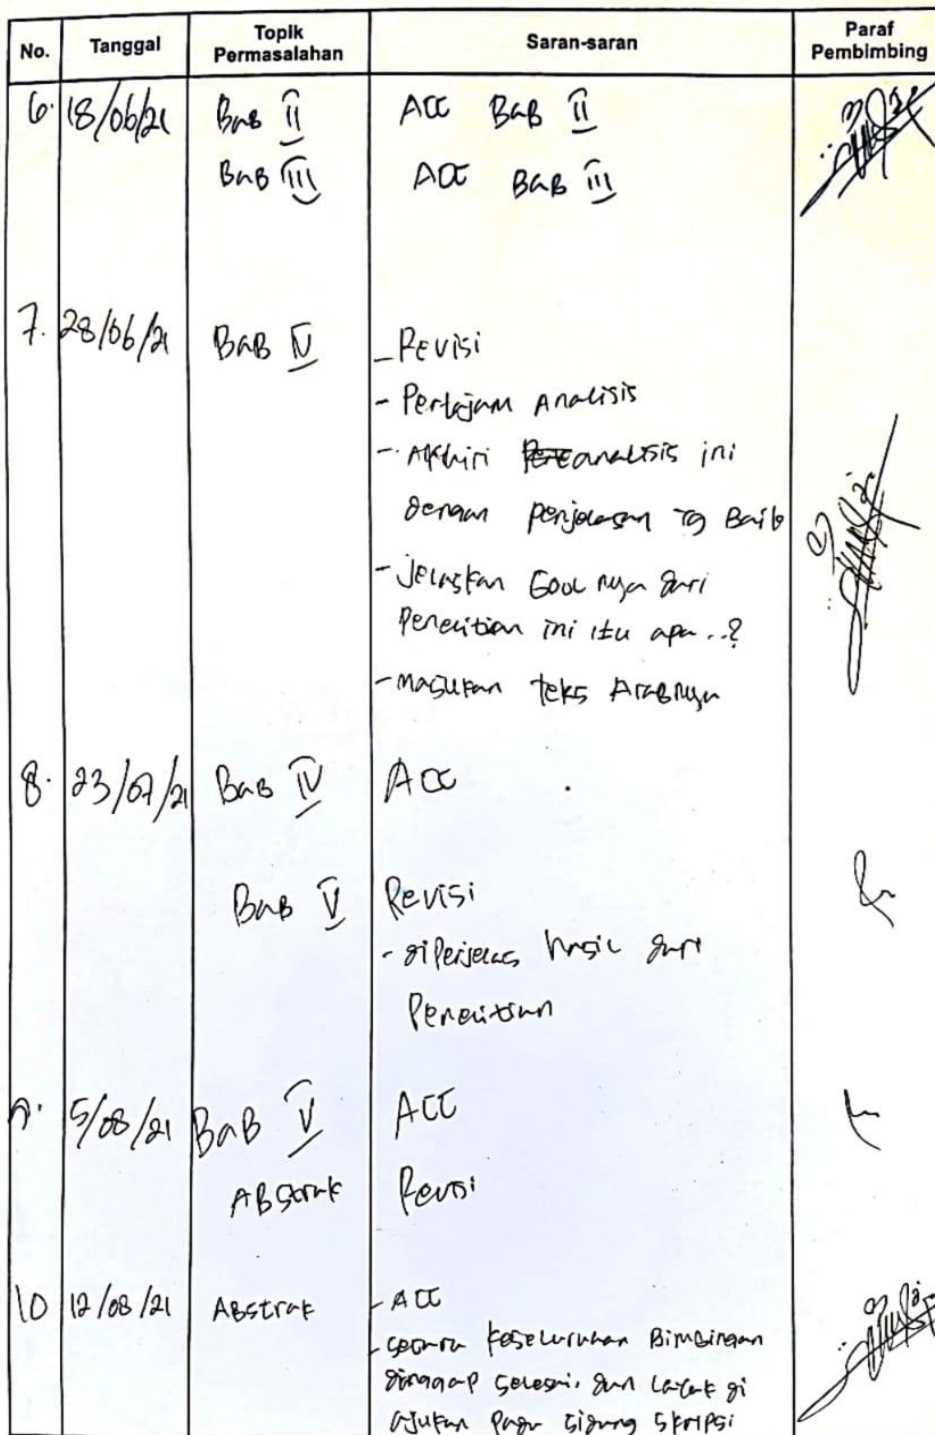 No. Tanggal Topik Permasalahan Saran-saran Paraf Pembimbing
6. 18/06/21 Bab II ACC Bab II
Bab III ACC Bab III
7. 28/06/21 Bab IV - Revisi
- Pertajam Analisis
- Akhiri analisis ini
dengan penjelasan yg Baik
- jelaskan Goolnya dari
Penelitian ini itu apa..?
- masukan teks Arabnya
8. 23/07/21 Bab IV ACC
Bab V Revisi
- diperjelas hasil dari
Penelitian
9. 5/08/21 Bab V ACC
Abstrak Revisi
10 12/08/21 Abstrak - ACC
- secara keseluruhan Bimbingan
dianggap selesai, dan layak di
ajukan pada sidang skripsi